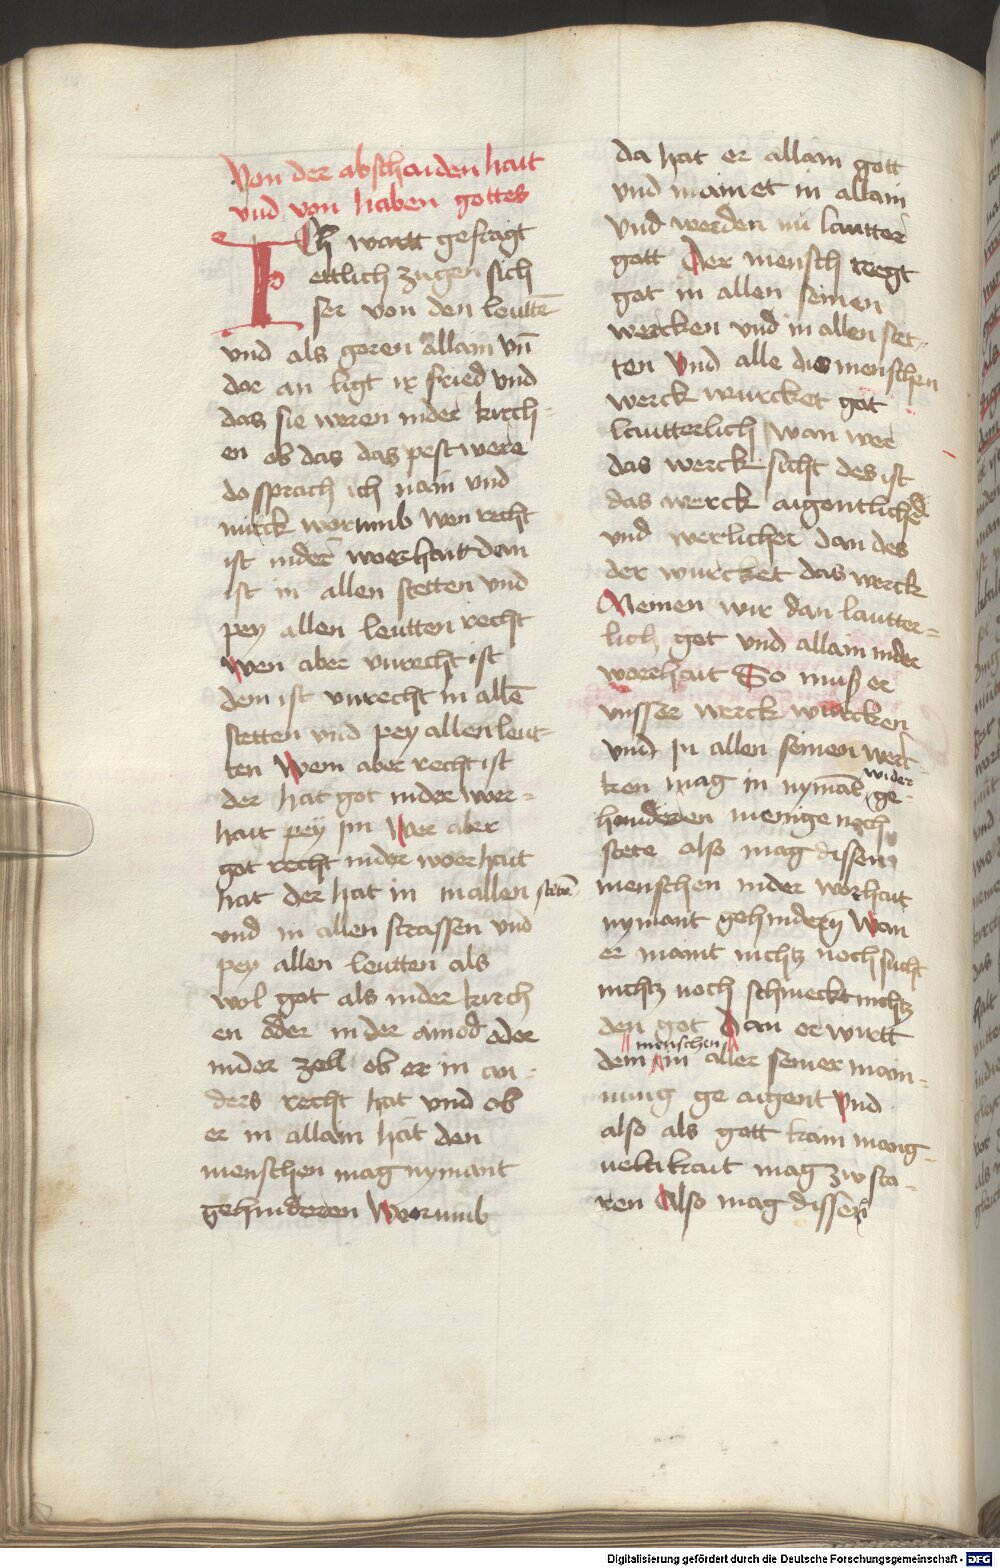 Von der abschaiden hait
vnd von haben gottes
Ich wartt gefragt
ettlich zugen sich
ser von den leuttē
vnd als geren allain vn̄
dor an ligt ir fried vnd
das sie weren in der kirch-
en ob das das pest were
do sprach ich nain vnd
mirck worumb wen recht
ist in der woerhait dem
ist in allen stetten vnd
pey allen leutten recht
Wen aber vnrecht ist
dem ist vnrecht in allē
stetten vnd pey allen leut-
ten Wem aber recht ist
der hat got in der wor-
hait pey im Wer aber
got recht in der woerhait
hat der hat in in allen stetē
vnd in allen strassen vnd
pey allen leutten als
wol got als in der kirch
en oder in der ainod ader
in der zell ob er in an-
ders recht hat vnd ob
er in allain hat den
menschen mag nymant
gehinderen Worumb
da hat er allain gott
vnd mainet in allain
vnd werden im lautter
gott Der mensch tregt
got in allen seinen
wercken vnd in allen stet-
ten Vnd alle dis menschen
werck wurcket got
lautterlich wan wer
das werck sucht des ist
das werck aigentlicher
vnd werlicher dan des
der wurcket das werck
Meinen wir dan lautter-
lich got vnd allain in der
worhait So muß er
vnsser werck wurcken
vnd in allen seinen werc
ken mag in nymāt wider ge-
hinderen menige noch
stete also mag dissen
menschen in der worhait
nymant gehindern Wan
er maint nichtz noch sucht
nichtz noch schmeckt nichtz
den got Dan er wirtt
dem menschen in aller seiner main-
nung ge aigent Vnd
also als gott kain mang-
ueltikait mag zw sta-
ren Also mag dissen
Digitalisierung gefördert durch die Deutsche Forschungsgemeinschaft - DFG